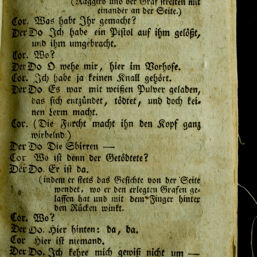 (Ruggiro und der Graf streiten mit
einander an der Seite.)
Cor. Was habt Jhr gemacht?
Der Do Jch habe ein Pistol auf ihm gelößt,
und ihm umgebracht.
Cor. Wo?
Der Do O wehe mir, hier im Vorhofe.
Cor. Jch habe ja keinen Knall gehört.
Der Do. Es war mit weißen Pulver geladen,
das sich entzündet, tödtet, und doch kei-
nen Lerm macht.
Cor. (Die Furcht macht ihn den Kopf ganz
wirbelnd.)
Der Do Die Sbirren —
Cor Wo ist denn der Getödtete?
Der Do. Er ist da.
(indem er stets das Gesichte von der Seite
wendet, wo er den erlegten Grafen ge-
lassen hat und mit dem Finger hinter
den Rücken winkt.
Cor. Wo?
Der Do. Hier hinten: da, da.
Cor Hier ist niemand.
Der Do. Jch kehre mich gewiß nicht um —